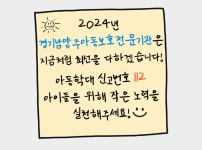 2024년
경기남양주아동보호전문기관은
지금처럼 최선을 다하겠습니다!
아동학대 신고번호 112
아이들을 위해 작은 노력을
실천해주세요!